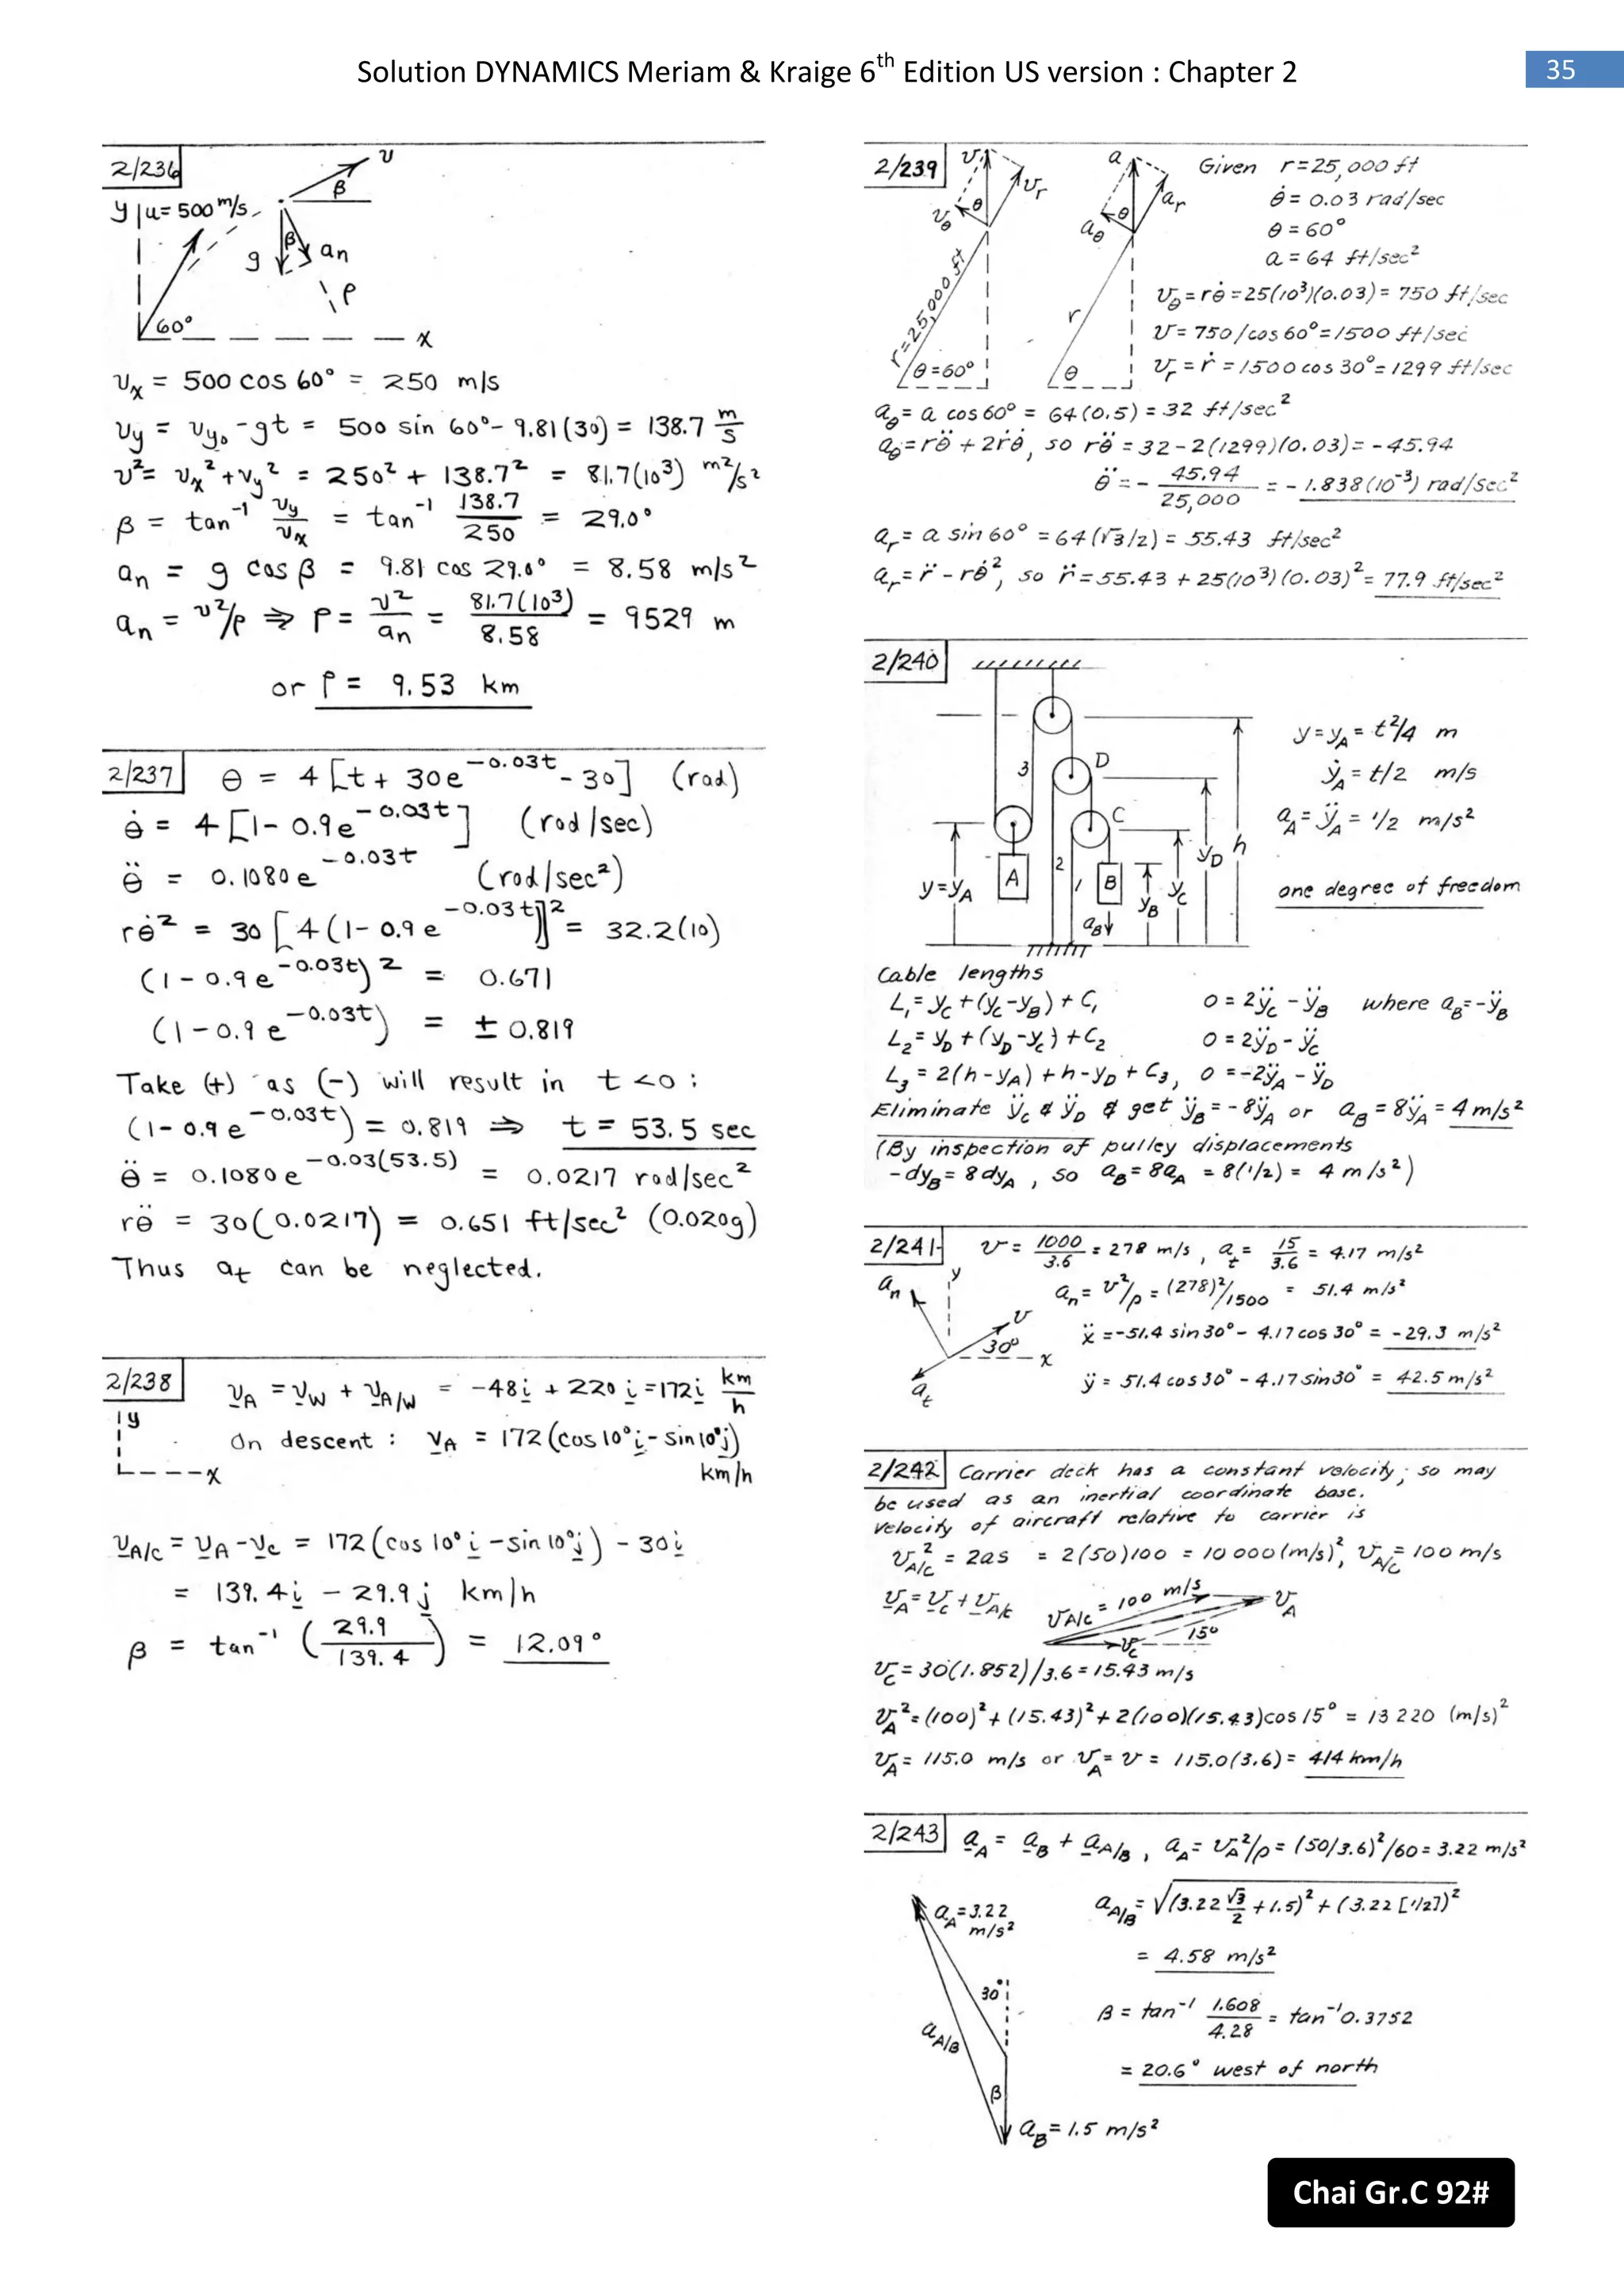 Solution DYNAMICS Meriam & Kraige 6th Edition US version : Chapter 2
35
2/236
v
β
y
u = 500 m/s
g
β
an
ρ
60°
x
vx = 500 cos 60° = 250 m/s
vy = vy₀ - gt = 500 sin 60° - 9.81(30) = 138.7 m/s
v² = vx² + vy² = 250² + 138.7² = 81.7(10³) m²/s²
β = tan⁻¹ vy/vx = tan⁻¹ 138.7/250 = 29.0°
an = g cos β = 9.81 cos 29.0° = 8.58 m/s²
an = v²/ρ ⇒ ρ = v²/an = 81.7(10³)/8.58 = 9529 m
or ρ = 9.53 km
2/237 θ = 4[t + 30e^-0.03t - 30] (rad)
θ̇ = 4[1 - 0.9e^-0.03t] (rad/sec)
θ̈ = 0.1080e^-0.03t (rad/sec²)
rθ̇² = 30[4(1 - 0.9e^-0.03t)]² = 32.2(10)
(1 - 0.9e^-0.03t)² = 0.671
(1 - 0.9e^-0.03t) = ± 0.819
Take (+) as (-) will result in t < 0 :
(1 - 0.9e^-0.03t) = 0.819 ⇒ t = 53.5 sec
θ̈ = 0.1080e^-0.03(53.5) = 0.0217 rad/sec²
rθ̈ = 30(0.0217) = 0.651 ft/sec² (0.020g)
Thus at can be neglected.
2/238 vA = vW + vA/W = -48i + 220i = 172i km/h
y
On descent : vA = 172(cos 10°i - sin 10°j)
x
km/h
vA/C = vA - vC = 172(cos 10°i - sin 10°j) - 30i
= 139.4i - 29.9j km/h
β = tan⁻¹(29.9/139.4) = 12.09°
2/239
v
vr
vθ
θ
r = 25,000 ft
θ = 60°
a
ar
aθ
θ
r
θ
Given r = 25,000 ft
θ̇ = 0.03 rad/sec
θ = 60°
a = 64 ft/sec²
vθ = rθ̇ = 25(10³)(0.03) = 750 ft/sec
v = 750/cos 60° = 1500 ft/sec
vr = ṙ = 1500 cos 30° = 1299 ft/sec
aθ = a cos 60° = 64(0.5) = 32 ft/sec²
aθ = rθ̈ + 2ṙθ̇, so rθ̈ = 32 - 2(1299)(0.03) = -45.94
θ̈ = - 45.94/25,000 = -1.838(10⁻³) rad/sec²
ar = a sin 60° = 64(√3/2) = 55.43 ft/sec²
ar = r̈ - rθ̇², so r̈ = 55.43 + 25(10³)(0.03)² = 77.9 ft/sec²
2/240
3
D
C
2
1
A
B
y = yA
aB
yB
yC
yD
h
y = yA = t²/4 m
ẏA = t/2 m/s
aA = ÿA = 1/2 m/s²
one degree of freedom
Cable lengths
L₁ = yC + (yC - yB) + C₁ 0 = 2ÿC - ÿB where aB = -ÿB
L₂ = yD + (yD - yC) + C₂ 0 = 2ÿD - ÿC
L₃ = 2(h - yA) + h - yD + C₃, 0 = -2ÿA - ÿD
Eliminate ÿC & ÿD & get ÿB = -8ÿA or aB = 8ÿA = 4 m/s²
(By inspection of pulley displacements
-dyB = 8dyA, so aB = 8aA = 8(1/2) = 4 m/s²)
2/241 v = 1000/3.6 = 278 m/s, at = 15/3.6 = 4.17 m/s²
an
y
v
30°
x
at
an = v²/ρ = (278)²/1500 = 51.4 m/s²
ẍ = -51.4 sin 30° - 4.17 cos 30° = -29.3 m/s²
ÿ = 51.4 cos 30° - 4.17 sin 30° = 42.5 m/s²
2/242 Carrier deck has a constant velocity, so may
be used as an inertial coordinate base.
Velocity of aircraft relative to carrier is
vA/C² = 2as = 2(50)100 = 10 000 (m/s)², vA/C = 100 m/s
vA = vC + vA/C
vA/C = 100 m/s
vA
vC
15°
vC = 30(1.852)/3.6 = 15.43 m/s
vA² = (100)² + (15.43)² + 2(100)(15.43)cos 15° = 13 220 (m/s)²
vA = 115.0 m/s or vA = v = 115.0(3.6) = 414 km/h
2/243 aA = aB + aA/B, aA = vA²/ρ = (50/3.6)²/60 = 3.22 m/s²
aA = 3.22 m/s²
30°
aA/B
β
aB = 1.5 m/s²
aA/B = √((3.22 √3/2 + 1.5)² + (3.22[1/2])²)
= 4.58 m/s²
β = tan⁻¹ 1.608/4.28 = tan⁻¹ 0.3752
= 20.6° west of north
Chai Gr.C 92#